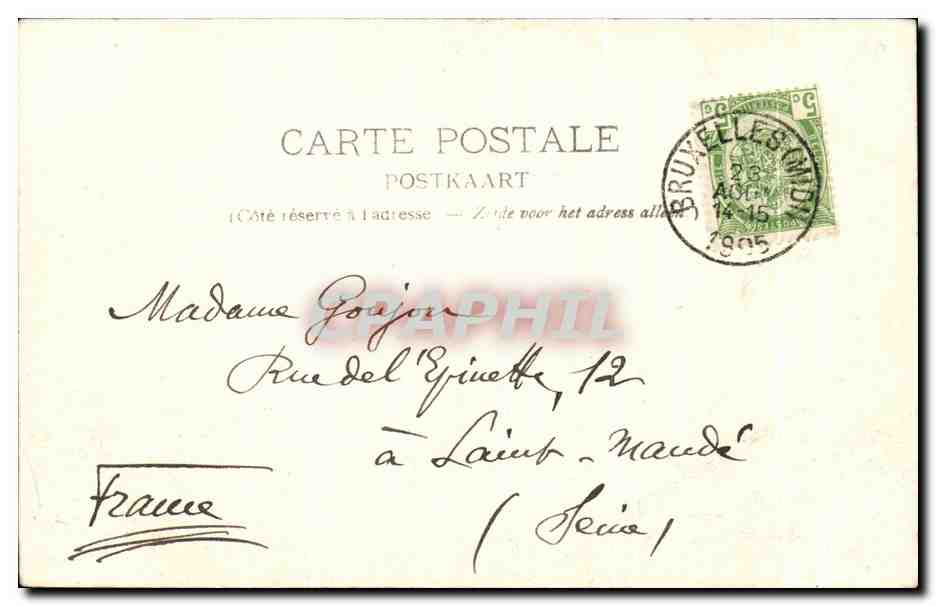 CARTE POSTALE
POSTKAART
(Côté réservé à l'adresse — Zijde voor het adress alleen)
5 c 5 c
BRUXELLES (MIDI)
AOÛT
14-15
1905
CPAPHIL
Madame Goujon
Rue de l'Épinette, 12
à Saint-Mandé
(Seine)
France